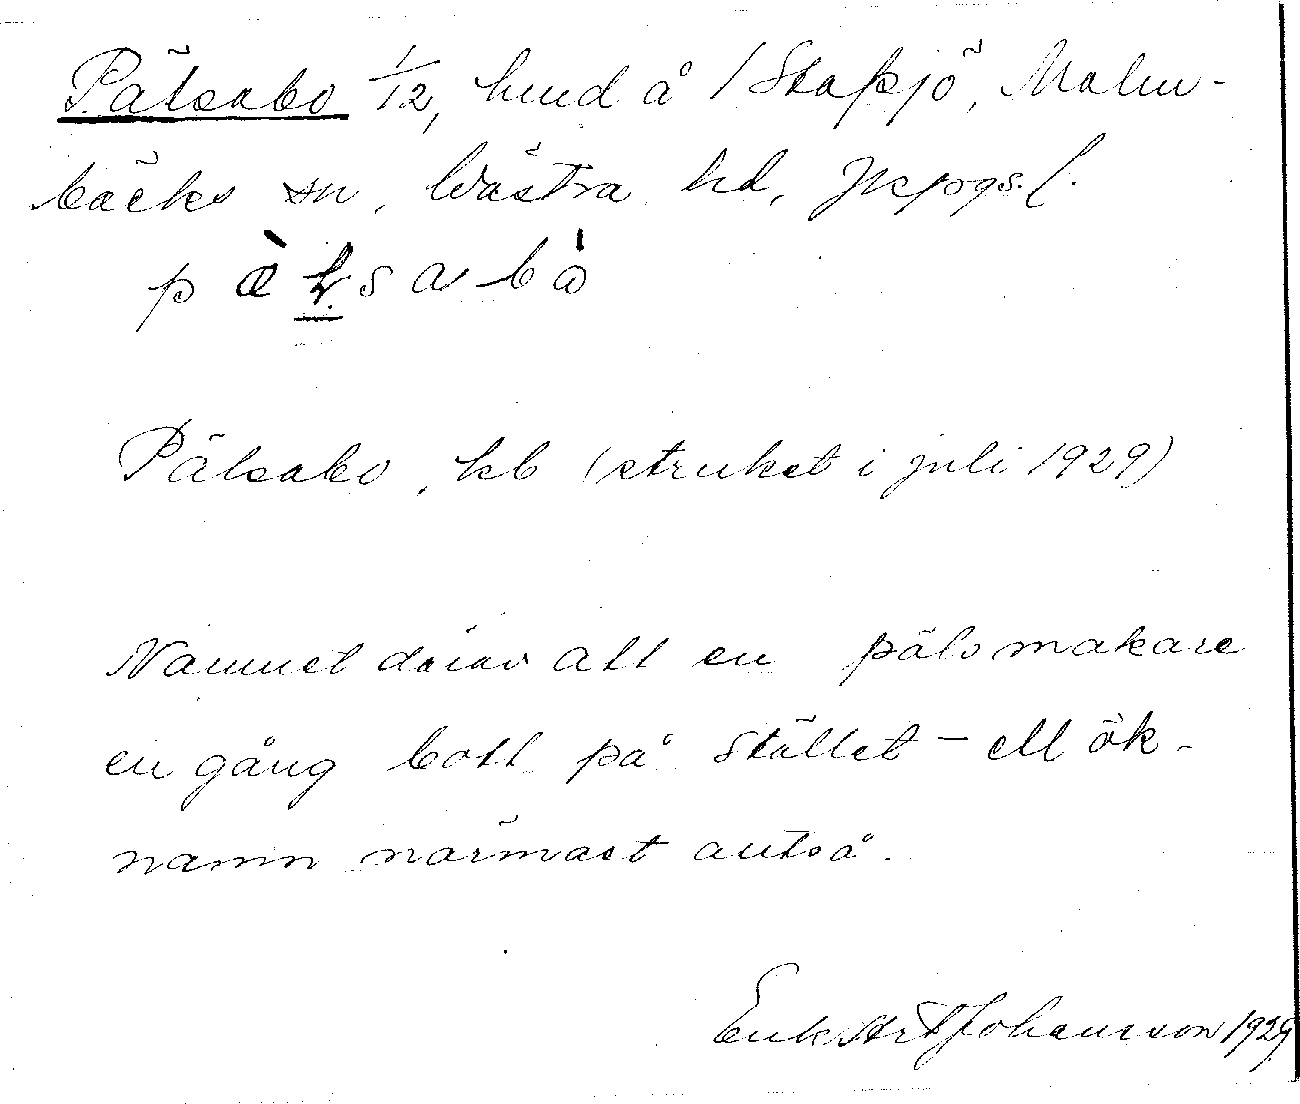 Pälsabo 1/12, hmd å /Stapsjö, Malm-
bäcks sn, Västra hd, Jkpgs. l.
pælsabo
Pälsabo, kb (struket i juli 1929)
Namnet därav att en pälsmakare
en gång bott på stället – ett ök-
namn närmast autså.
Johansson 1929